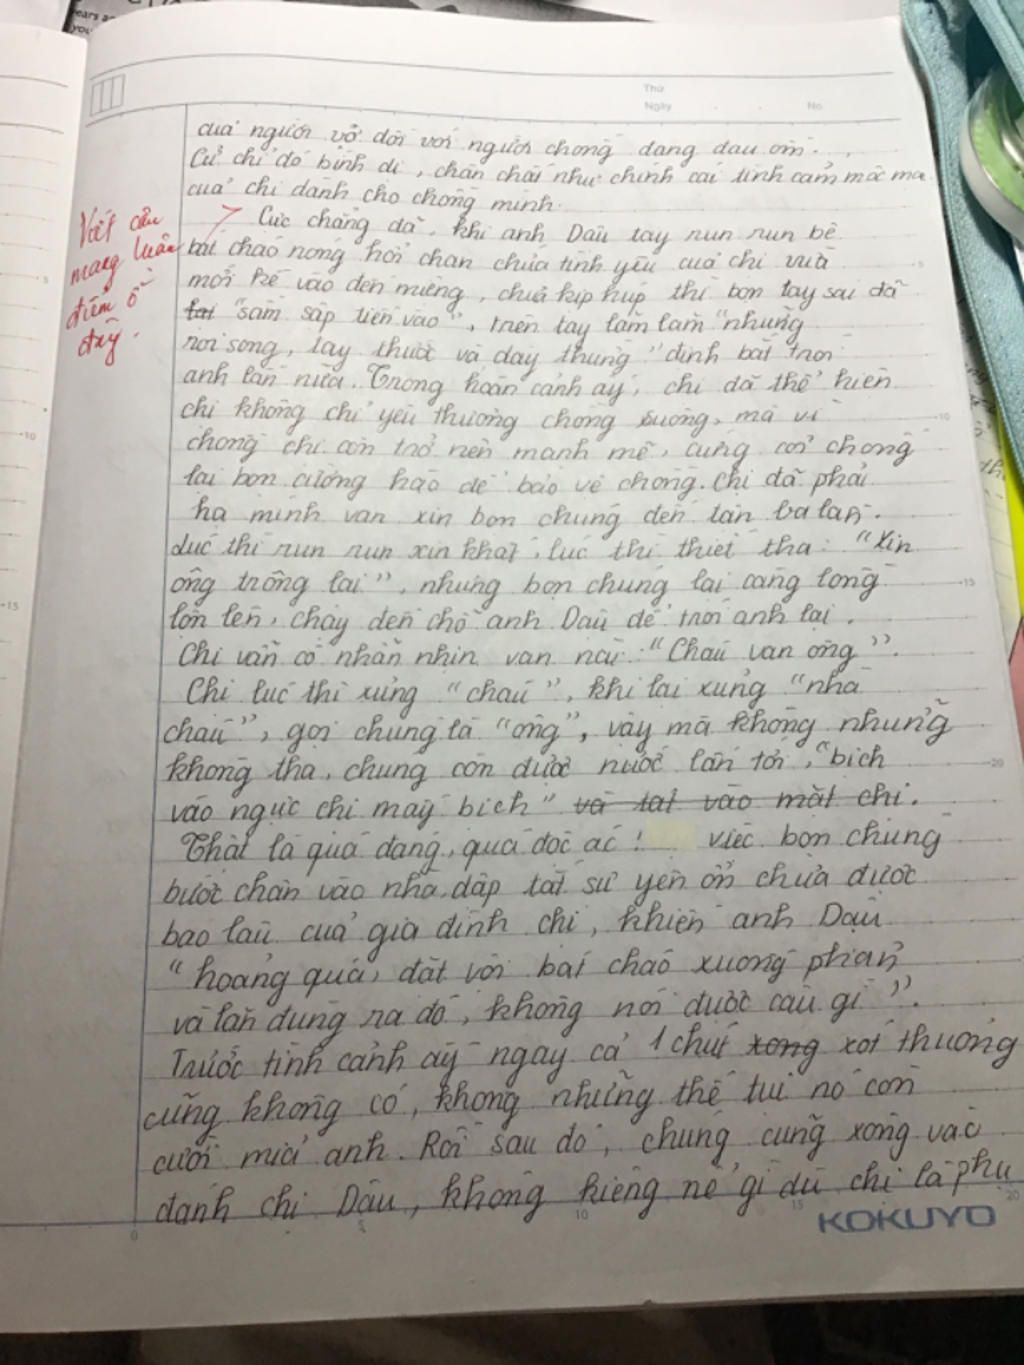 ears a
you
Thứ
Ngày
No
của người vợ đối với người chồng đang đau ốm.
Cử chỉ đó bình dị, chân chất như chính cái tình cảm mộc mạc
của chị dành cho chồng mình.
Cực chẳng đã, khi anh Dậu tay run run bê
bát cháo nóng hổi chan chứa tình yêu của chị vừa
mới kề vào đến miệng, chưa kịp húp thì bọn tay sai đã
tai "sầm sập tiến vào", trên tay lăm lăm "những
roi song, tay thước và dây thừng" định bắt trói
anh lần nữa. Trong hoàn cảnh ấy, chị đã thể hiện
chị không chỉ yêu thương chồng suông, mà vì
chồng chị còn trở nên mạnh mẽ, cứng cỏi chống
lại bọn cường hào để bảo vệ chồng. Chị đã phải
hạ mình van xin bọn chúng đến lần ba lần.
Lúc thì run run xin khất, lúc thì thiết tha: "Xin
ông trông lại", nhưng bọn chúng lại càng lồng
lộn lên, chạy đến chỗ anh Dậu để trói anh lại.
Chị vẫn cố nhẫn nhịn van nài: "Cháu van ông".
Chị lúc thì xưng "cháu", khi lại xưng "nhà
cháu", gọi chúng là "ông", vậy mà không những
không tha, chúng còn được nước lấn tới, "bịch
vào ngực chị mấy bịch" và tát vào mặt chị.
Thật là quá đáng, quá độc ác! việc bọn chúng
bước chân vào nhà, dập tắt sự yên ổn chưa được
bao lâu của gia đình chị, khiến anh Dậu
"hoảng quá, đặt vội bát cháo xuống phản
và lăn đùng ra đó, không nói được câu gì".
Trước tình cảnh ấy ngay cả 1 chút xong xót thương
cũng không có, không những thế tụi nó còn
cười mỉa anh. Rồi sau đó, chúng cũng xông vào
đánh chị Dậu, không kiêng nể gì dù chị là phụ
Viết câu
mang luận
điểm ở
đây.
5
10
15
20
0
5
10
15
20
KOKUYO